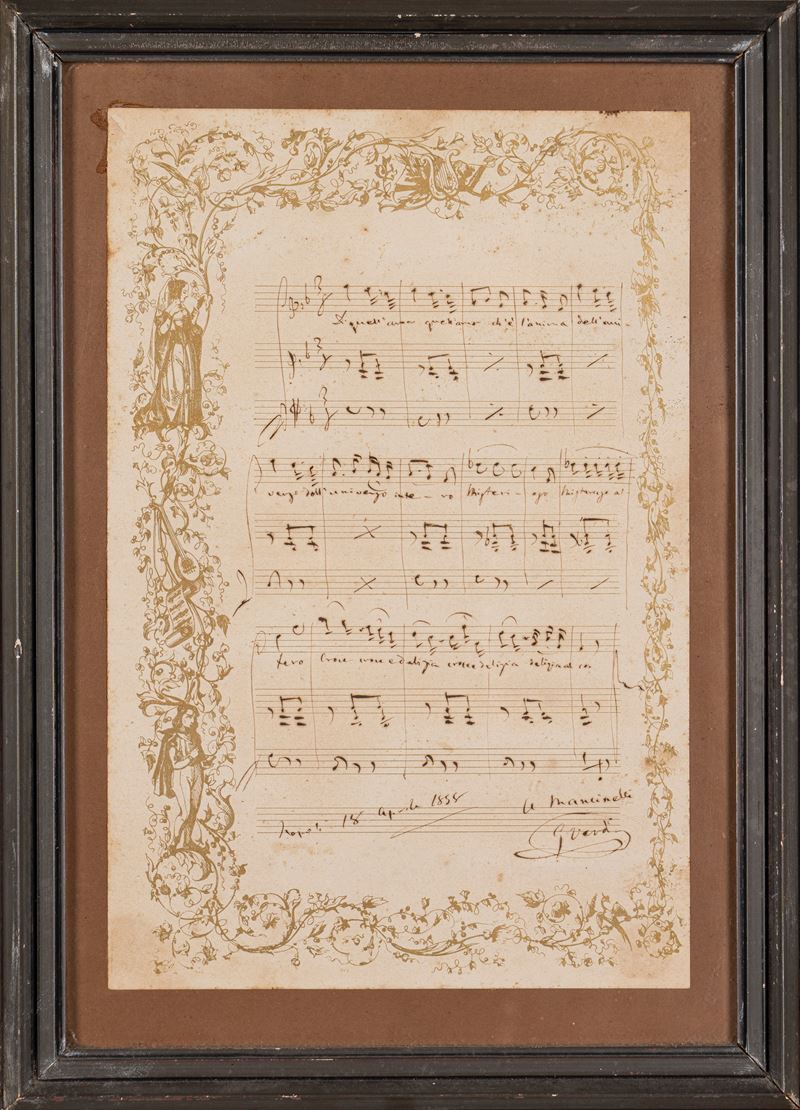 Di quell'amor quell'amor ch'è l'anima dell'uni-
verso dell'universo inte - ro Misteri - oso Misterioso al
tero Croce croce e delizia croce delizia delizia al cor
Napoli 18 Aprile 1858
A Mancinelli
G Verdi